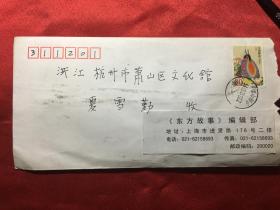 311201
浙江 杭州市萧山区文化馆
夏雪勤 收
《东方故事》编辑部
地址：上海市进贤路176号二楼
电话：021-62158693 传真：021-62158693
邮政编码：200020